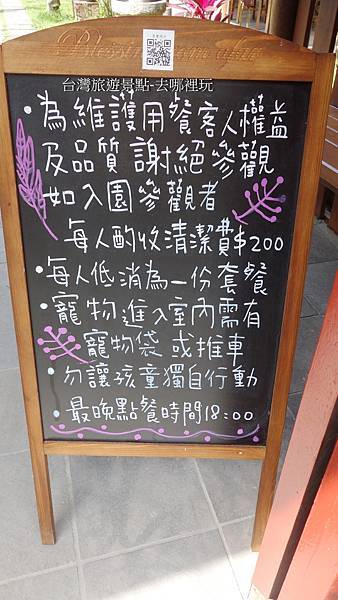 台灣旅遊景點-去哪裡玩
•為維護用餐客人權益
及品質謝絕參觀
如入園參觀者
每人酌收清潔費$200
•每人低消為一份套餐
•寵物進入室內需有
寵物袋或推車
•勿讓孩童獨自行動
•最晚點餐時間18:00